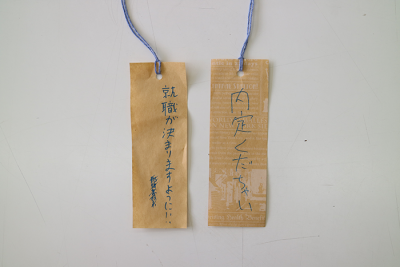 就職が決まりますように!!
内定ください